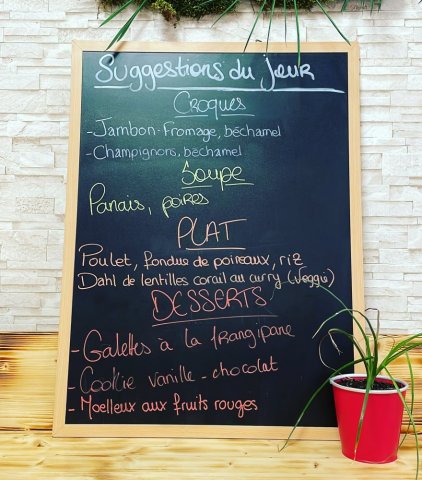 Suggestions du jour
Croques
- Jambon-Fromage, béchamel
- Champignons, béchamel
Soupe
Panais, poires
PLAT
Poulet, fondue de poireaux, riz
Dahl de lentilles corail au curry (veggie)
DESSERTS
- Galettes à la frangipane
- Cookie vanille - chocolat
- Moelleux aux fruits rouges